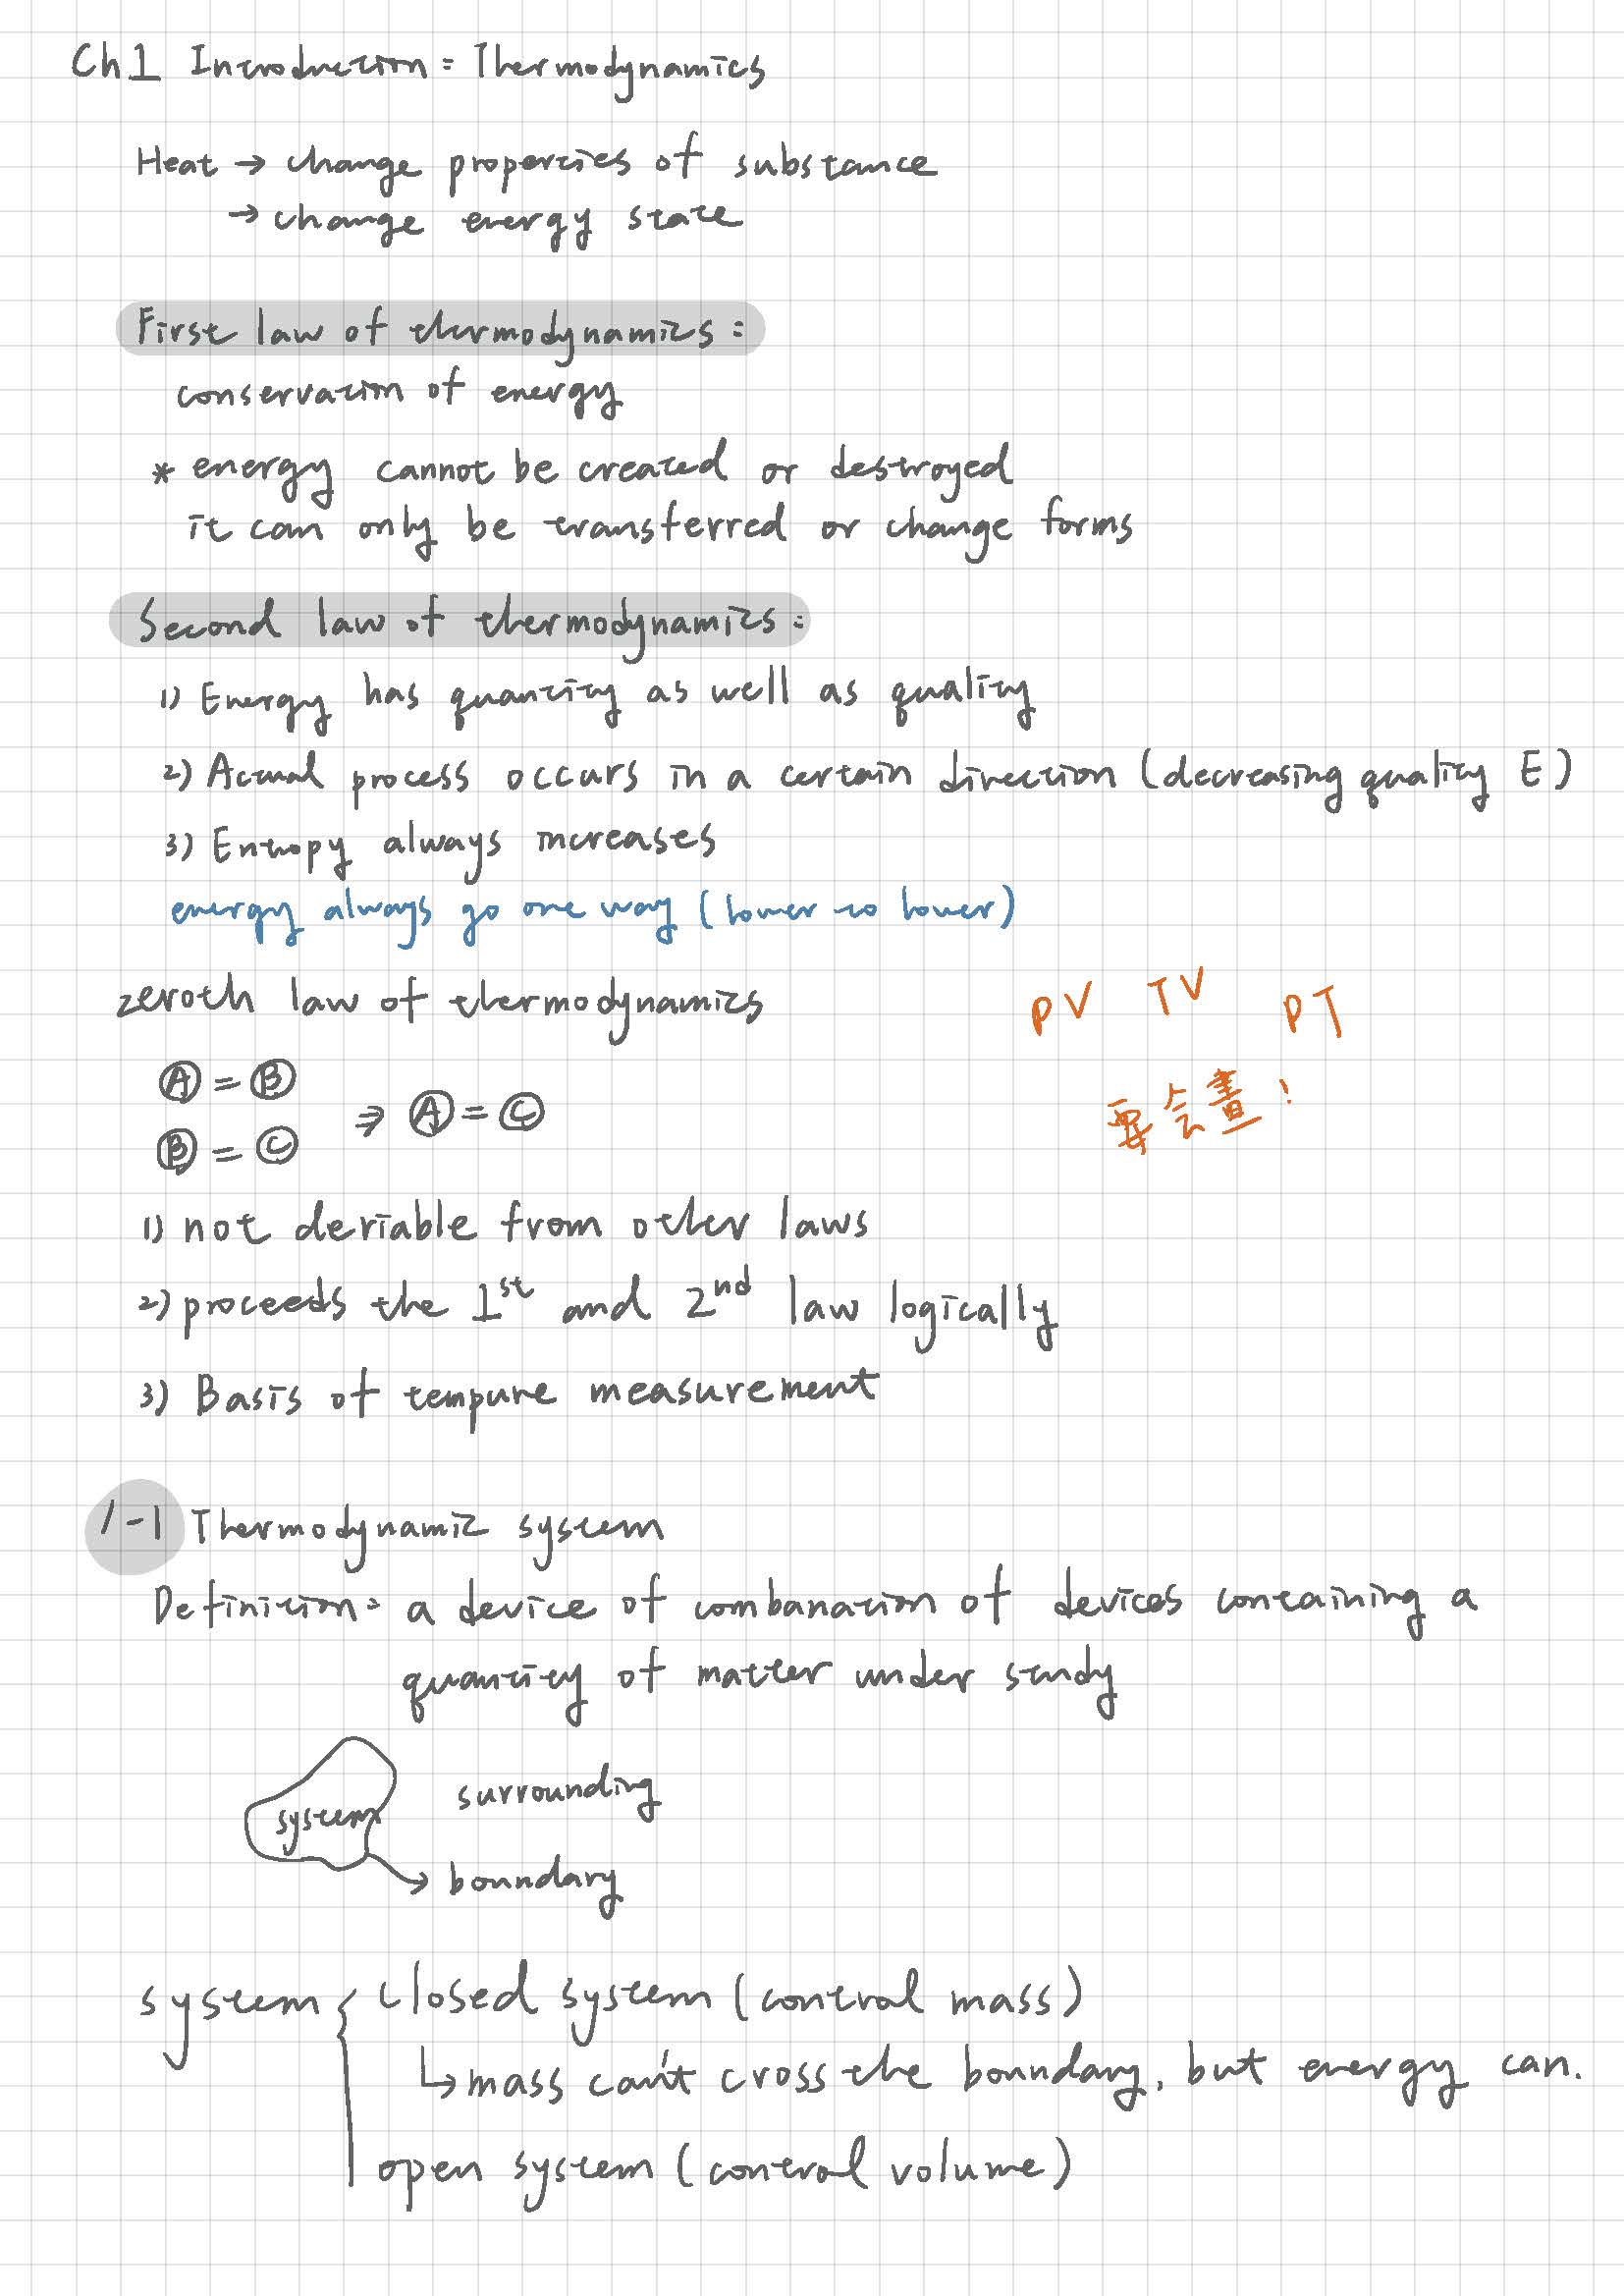 Ch1 Introduction: Thermodynamics
Heat → change properties of substance
→ change energy state
First law of thermodynamics:
conservation of energy
* energy cannot be created or destroyed
it can only be transferred or change forms
Second law of thermodynamics:
1) Energy has quantity as well as quality
2) Actual process occurs in a certain direction (decreasing quality E)
3) Entropy always increases
energy always go one way (lower to lower)
zeroth law of thermodynamics
PV TV PT
要会畫!
Ⓐ = Ⓑ
Ⓑ = Ⓒ
⇒ Ⓐ = Ⓒ
1) not deriable from other laws
2) proceeds the 1st and 2nd law logically
3) Basis of tempure measurement
1-1 Thermodynamic system
Definition: a device of combanation of devices containing a
quantity of matter under study
system
surrounding
→ boundary
system { closed system (control mass)
↳ mass can't cross the boundary, but energy can.
open system (control volume)